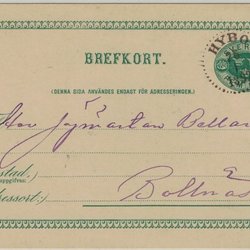 BREFKORT.
(DENNA SIDA ANVÄNDES ENDAST FÖR ADRESSERINGEN.)
HYBO
Herr Jägmästare Bellan
stad.
Bollnäs
ressort:)